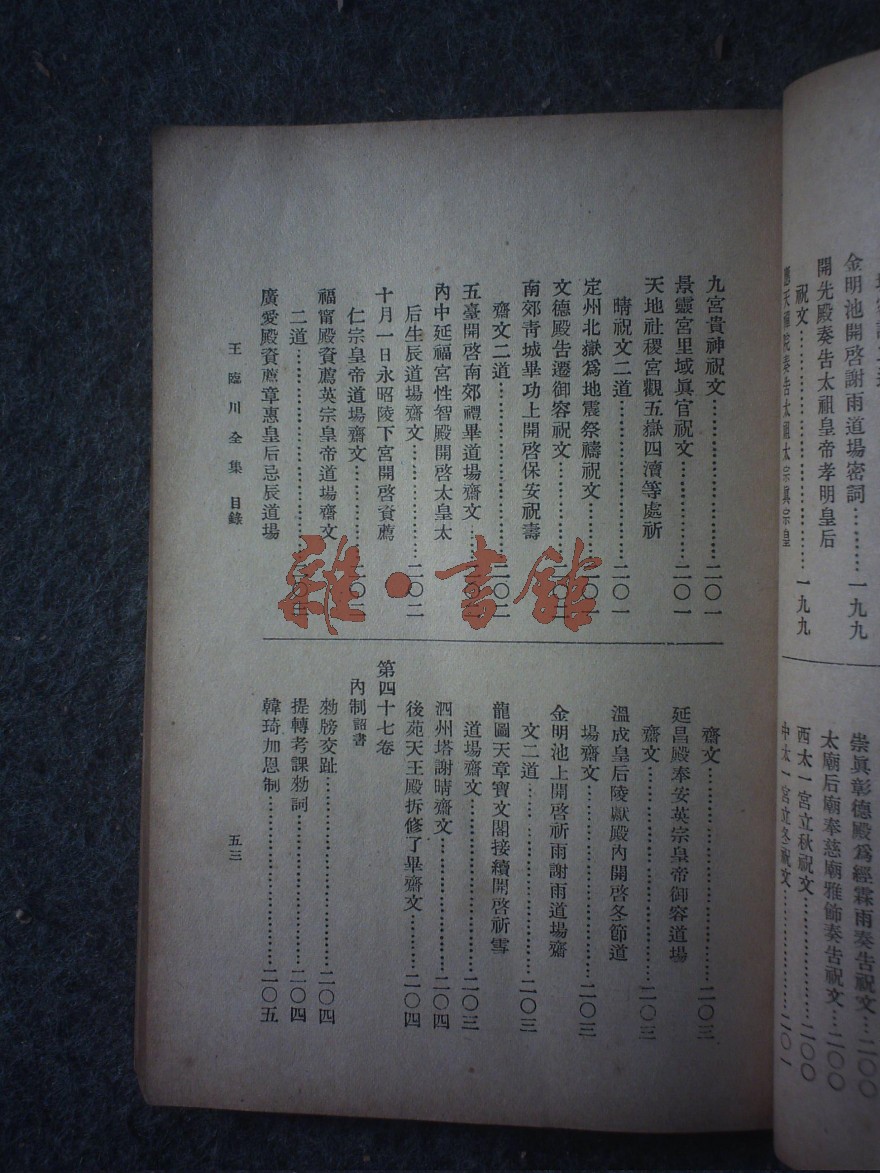 金明池開啓謝雨道場密詞………一九九
開光殿奏告太祖皇帝孝明皇后
祝文……………………一九九
崇眞彰德殿爲經霖雨奏告祝文…二〇〇
太廟后廟奉慈廟雅飾奏告祝文…二〇〇
西太一宮立秋祝文……………二〇〇
中太一宮立冬祝文……………二〇一
九宮貴神祝文……………………二〇一
景靈宮里域眞官祝文……………二〇一
天地社稷宮觀五嶽四瀆等處祈
晴祝文二道……………………二〇一
定州北嶽爲地震祭禱祝文………二〇一
文德殿告遷御容祝文……………
南郊青城畢功上開啓保安祝壽
齋文二道……………………二〇二
五臺開啓南郊禮畢道場齋文……
內中延福宮性智殿開啓太皇太
后生辰道場齋文………………二〇二
十月一日永昭陵下宮開啓資薦
仁宗皇帝道場齋文……………
福甯殿資薦英宗皇帝道場齋文
二道……………………………
廣愛殿資薦章惠皇后忌辰道場
齋文……………………………二〇三
延昌殿奉安英宗皇帝御容道場
齋文……………………………二〇三
溫成皇后陵獻殿內開啓冬節道
場齋文…………………………二〇三
金明池上開啓祈雨謝雨道場齋
文二道…………………………二〇三
龍圖天章寶文閣接續開啓祈雪
道場齋文………………………二〇三
泗州塔謝晴齋文…………………二〇四
後苑天王殿拆修了畢齋文………二〇四
第四十七卷
內制詔書
勑牓交趾…………………………二〇四
提轉考課勑詞……………………二〇四
韓琦加恩制………………………二〇五
王臨川全集 目錄
五三
雜·書館